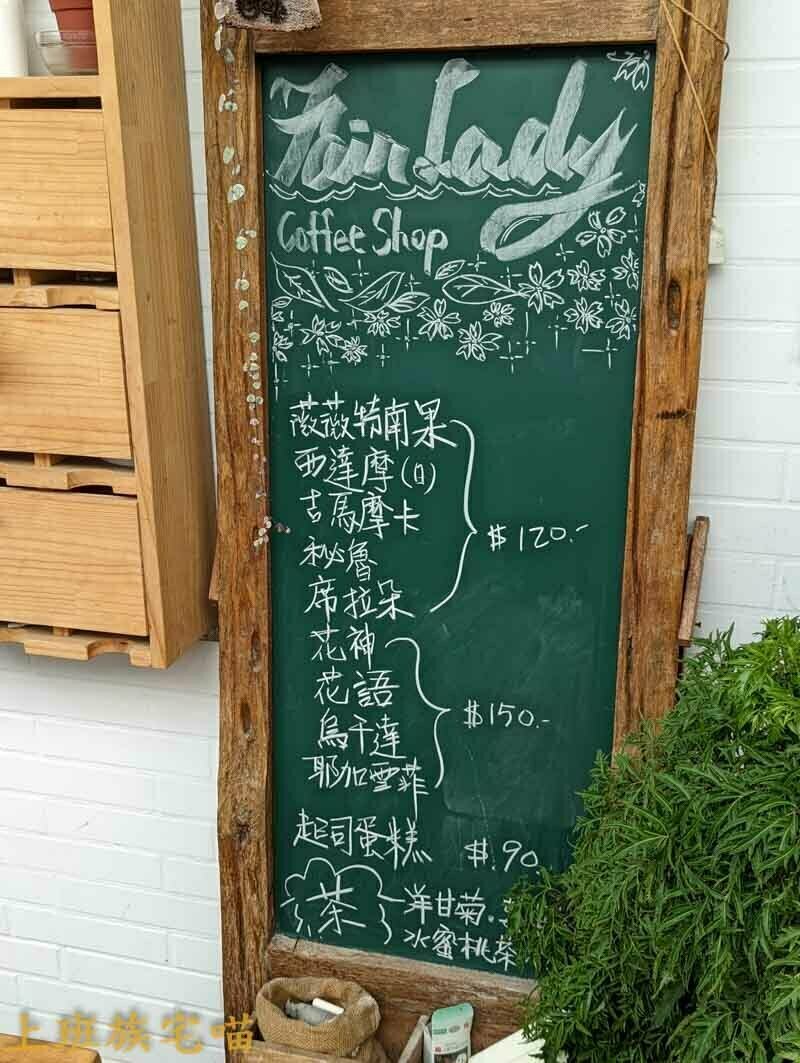 Fair Lady
Coffee Shop
薇薇特南果
西達摩(日)
吉馬摩卡
秘魯
席拉朵
$120.-
花神
花語
烏干達
耶加雪菲
$150.-
起司蛋糕 $.90.
茶
洋甘菊.
水蜜桃茶
上班族宅喵